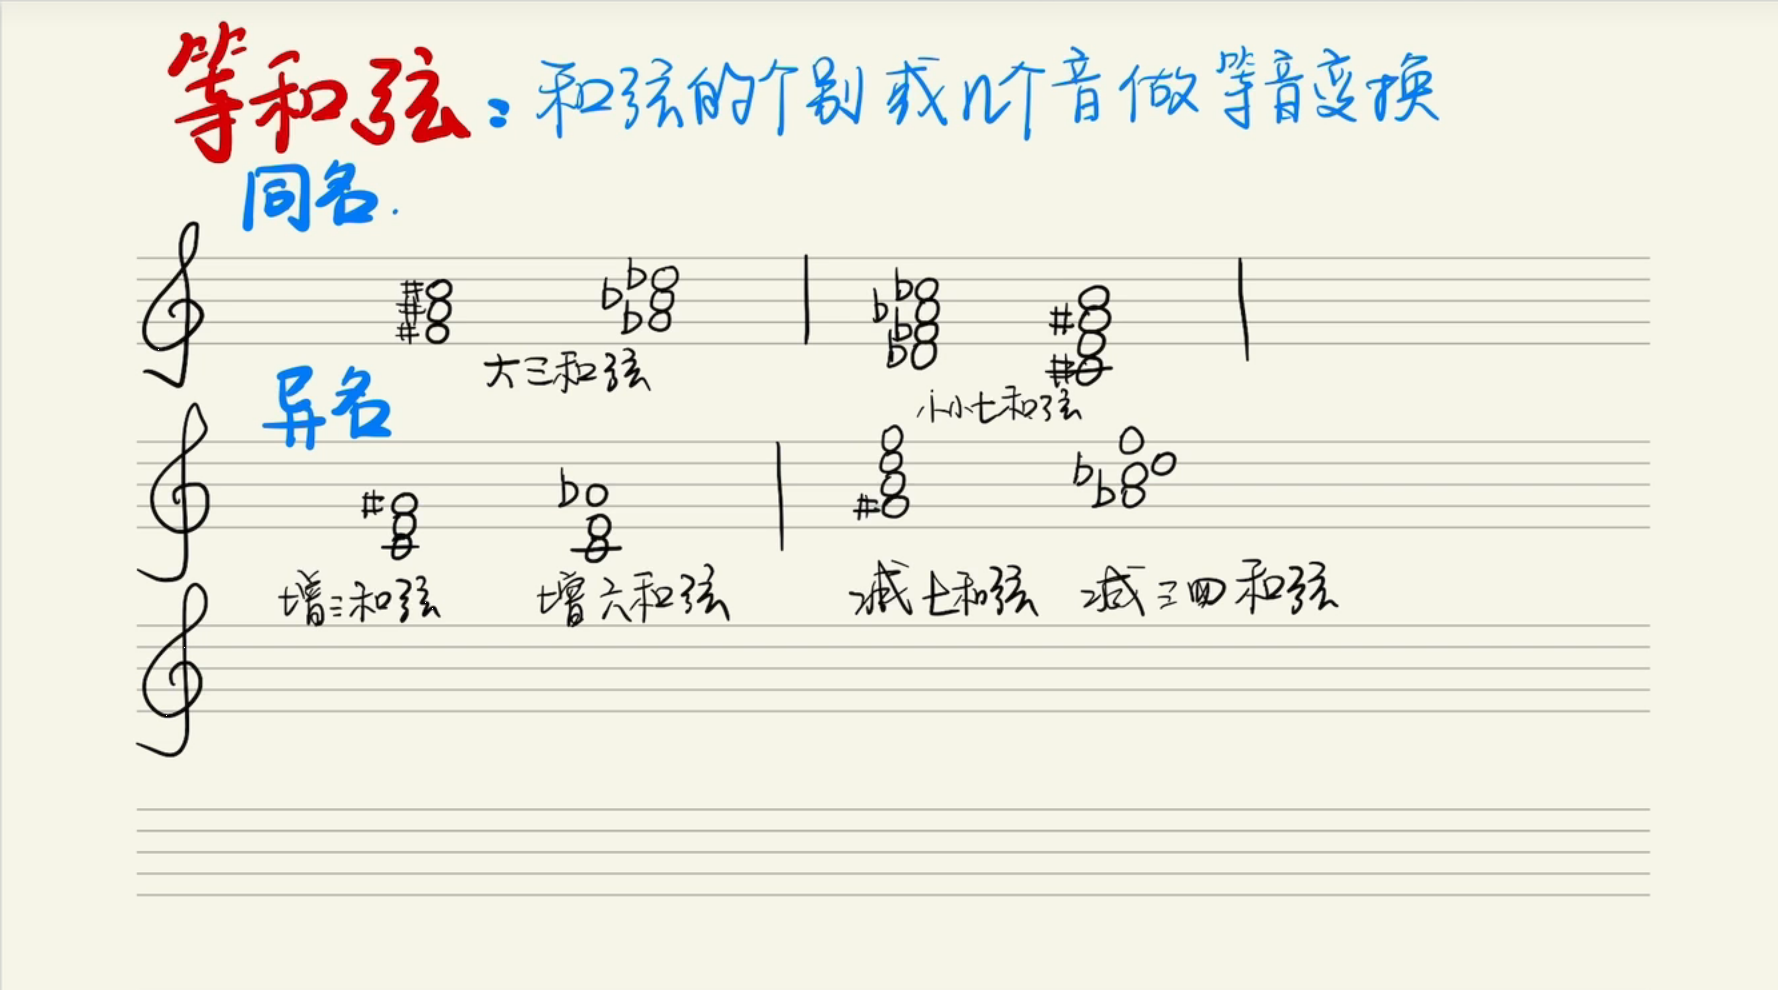 等和弦：和弦的个别或几个音做等音变换
同名.
大三和弦
小小七和弦
异名
增三和弦 增六和弦 减七和弦 减三四和弦